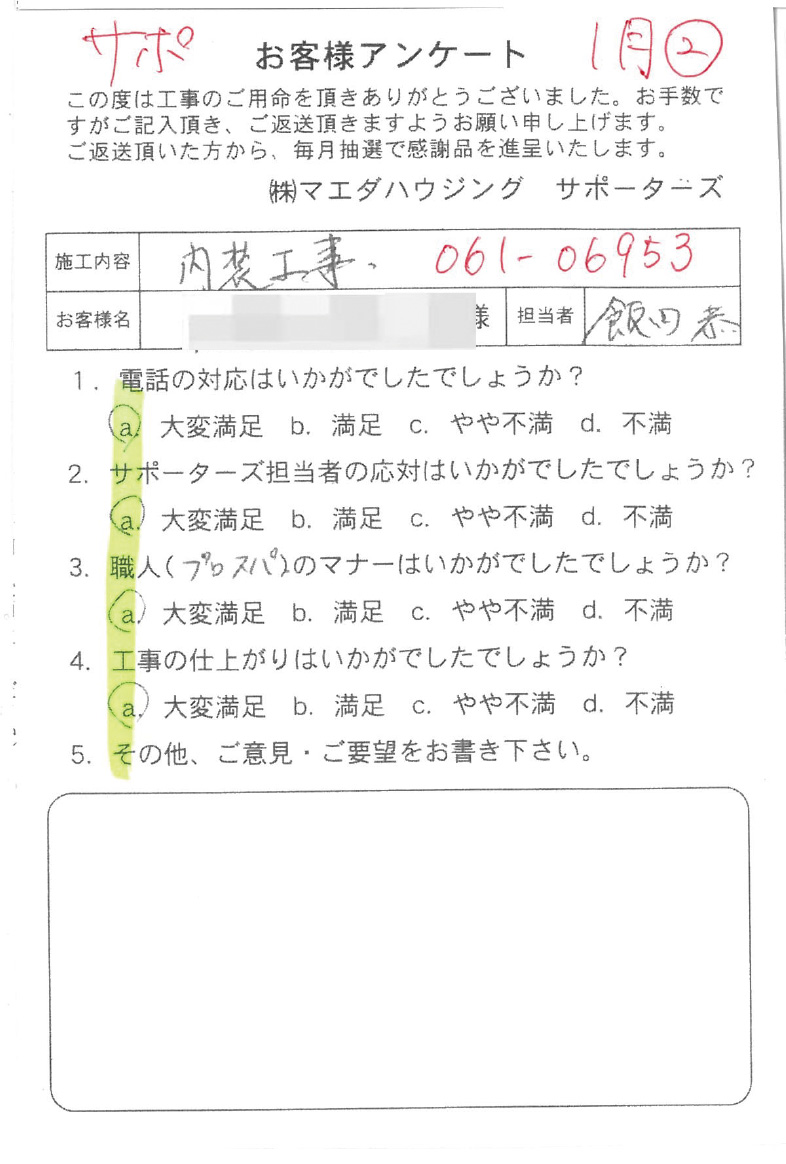 サポ お客様アンケート 1月②
この度は工事のご用命を頂きありがとうございました。お手数で
すがご記入頂き、ご返送頂きますようお願い申し上げます。
ご返送頂いた方から、毎月抽選で感謝品を進呈いたします。
㈱マエダハウジング サポーターズ
施工内容 内装工事、 061-06953
お客様名 様 担当者 飯田 恭
1. 電話の対応はいかがでしたでしょうか？
a. 大変満足 b. 満足 c. やや不満 d. 不満
2. サポーターズ担当者の応対はいかがでしたでしょうか？
a. 大変満足 b. 満足 c. やや不満 d. 不満
3. 職人(プロスパ)のマナーはいかがでしたでしょうか？
a. 大変満足 b. 満足 c. やや不満 d. 不満
4. 工事の仕上がりはいかがでしたでしょうか？
a. 大変満足 b. 満足 c. やや不満 d. 不満
5. その他、ご意見・ご要望をお書き下さい。